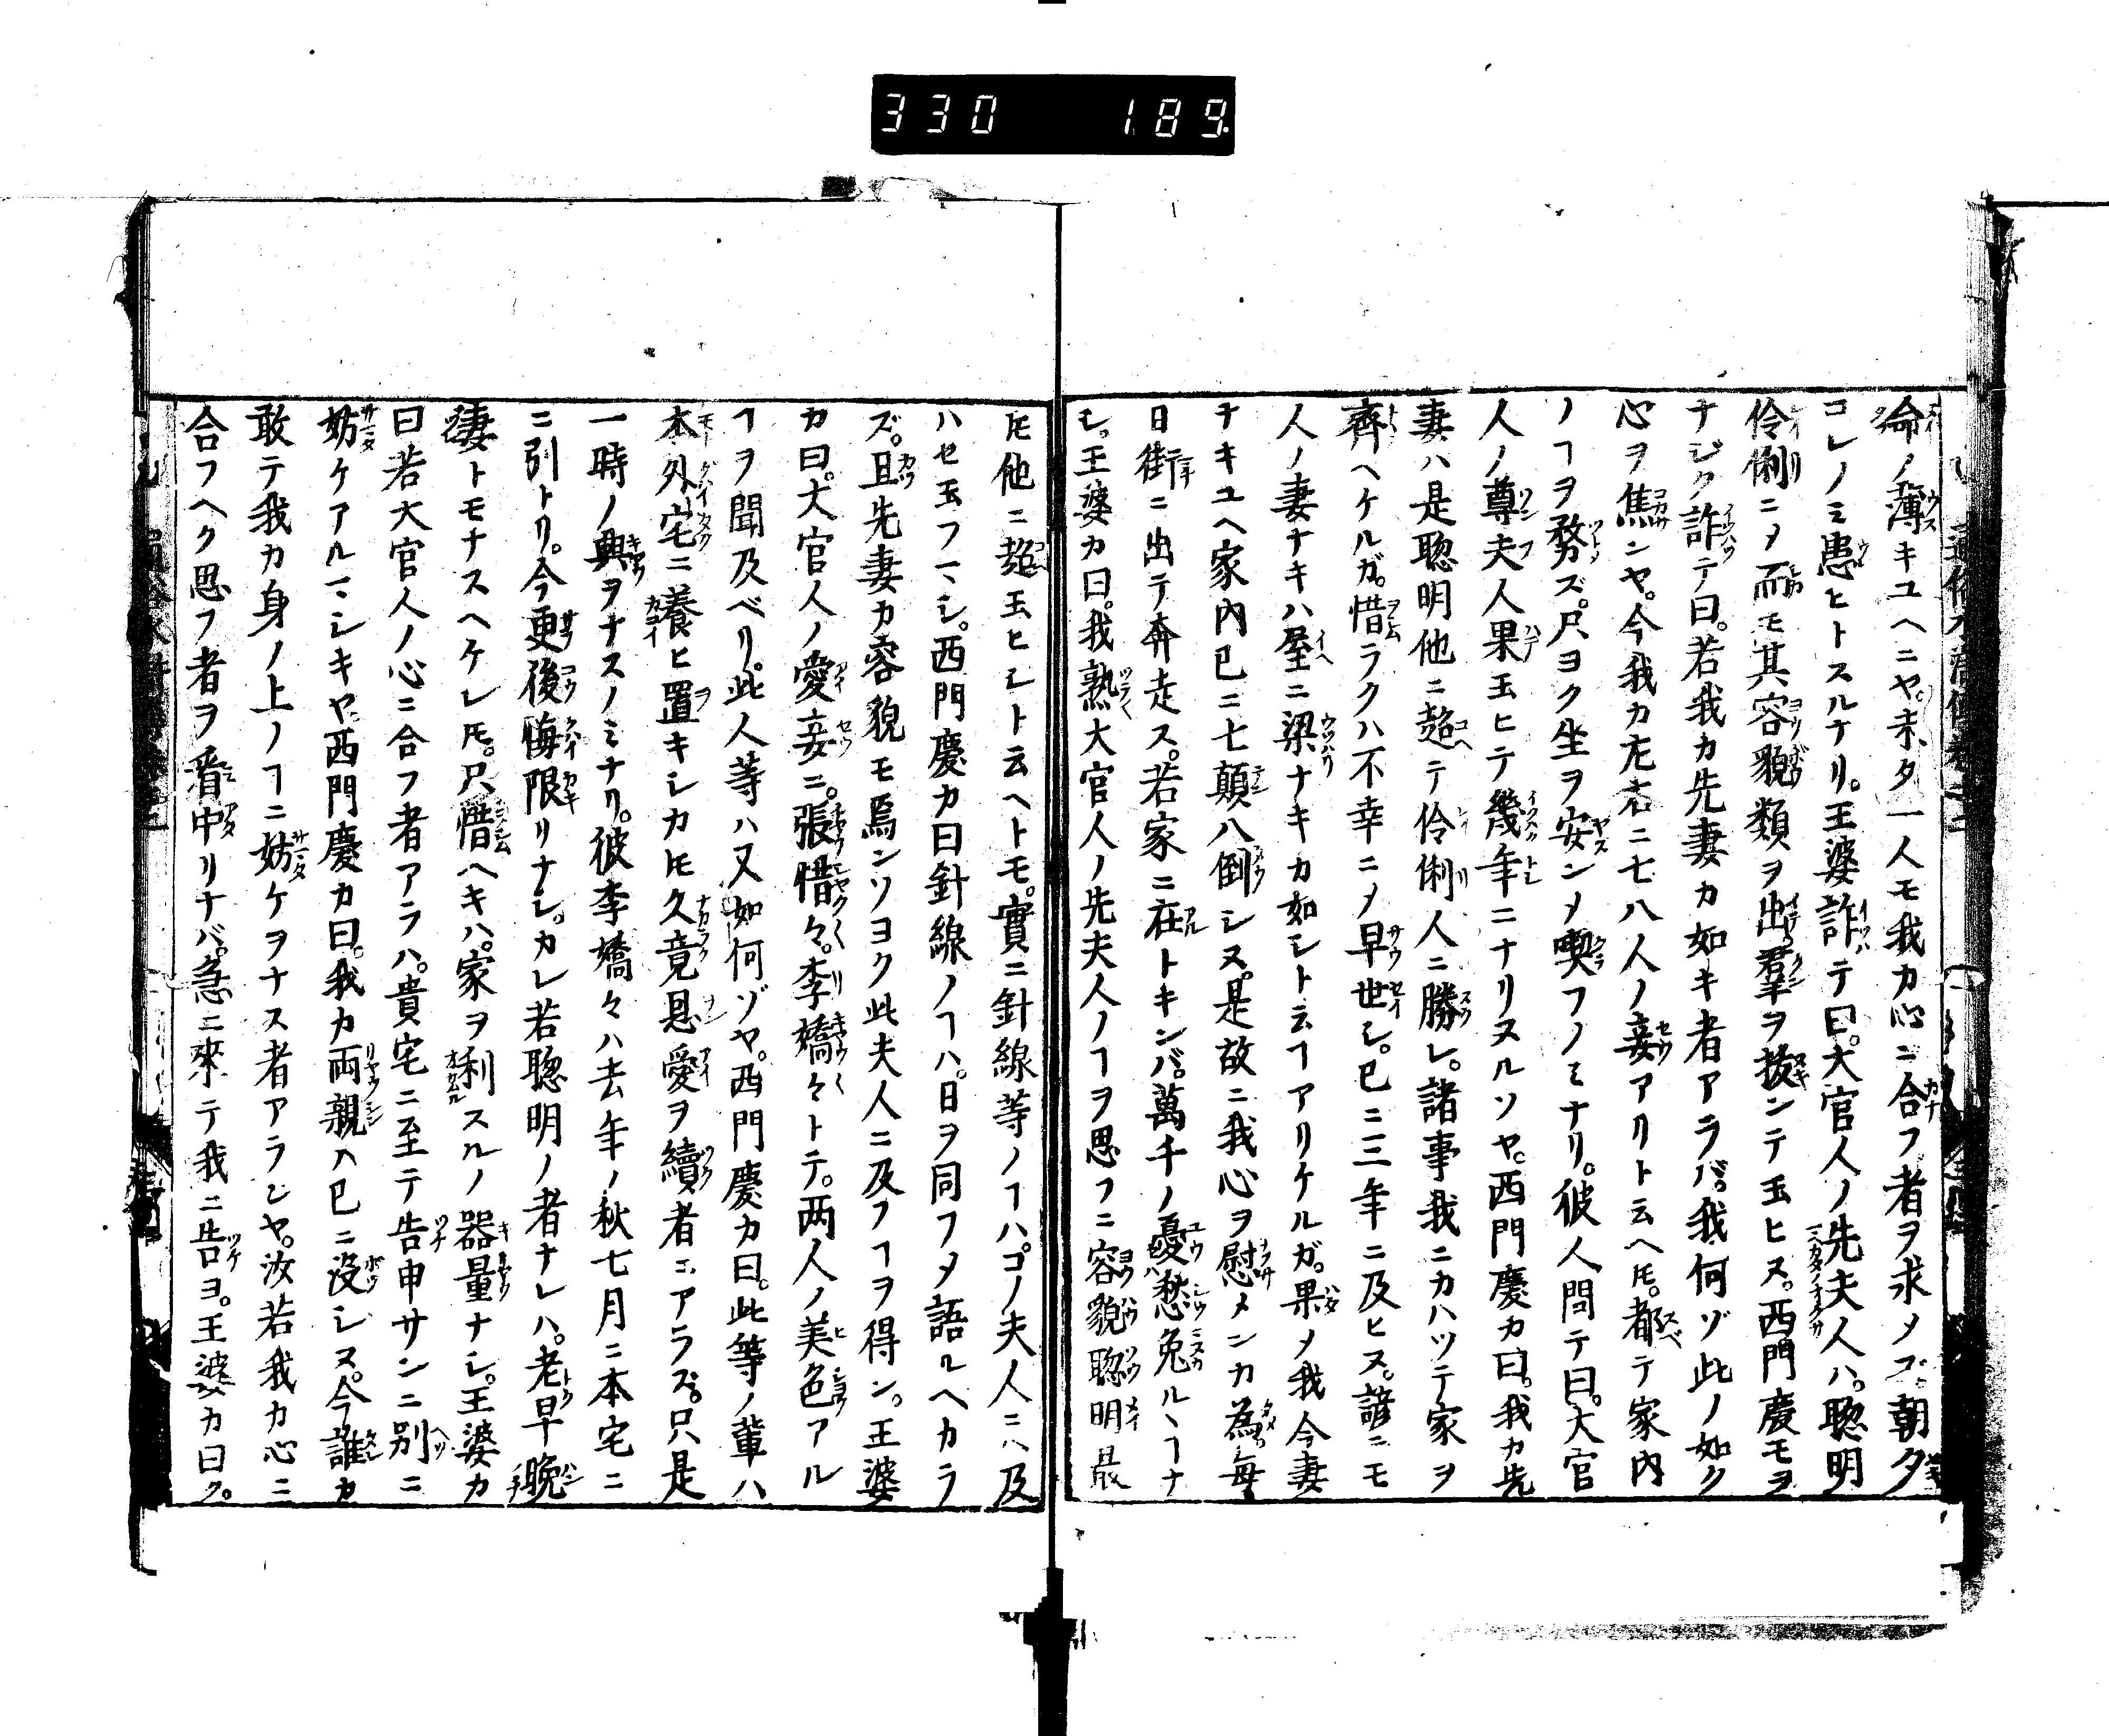 330 189
命ノ薄キユヘニヤ。未タ一人モ我カ心ニ合フ者ヲ求メズ。朝夕
コレノミ患ヒトスルナリ。王婆詐テ曰。大官人ノ先夫人ハ。聡明
伶俐ニ〆而モ其容貌類ヲ出羣ヲ拔ンテ玉ヒヌ。西門慶モヲ
ナジク詐テ曰。若我カ先妻カ如キ者アラバ。我何ゾ此ノ如ク
心ヲ焦ンヤ。今我カ左右ニ七八人ノ妾アリト云ヘ𪜈。都テ家内
ノヿヲ務ズ。只ヨク坐ヲ安ン〆喫フノミナリ。彼人問テ曰。大官
人ノ尊夫人果玉ヒテ幾年ニナリヌルソヤ。西門慶カ曰。我カ先
妻ハ是聡明他ニ超テ伶俐人ニ勝レ。諸事我ニカハツテ家ヲ
齊ヘケルガ。惜ラクハ不幸ニ〆早世シ。已ニ三年ニ及ヒヌ。諺ニモ
人ノ妻ナキハ屋ニ梁ナキカ如シト云ヿアリケルガ。果〆我今妻
ナキユヘ家内已ニ七顛八倒シヌ。是故ニ我心ヲ慰メンカ為。毎
日街ニ出テ奔走ス。若家ニ在トキンバ。萬千ノ憂愁免ルヽヿナ
シ。王婆カ曰。我熟大官人ノ先夫人ノヿヲ思フニ容貌聡明最
𪜈他ニ超玉ヒシト云ヘトモ。實ニ針線等ノヿハ。コノ夫人ニハ及
ハセ玉フマシ。西門慶カ曰針線ノヿハ。日ヲ同フ〆語ルヘカラ
ズ。且先妻カ容貌モ焉ンソヨク此夫人ニ及フヿヲ得ン。王婆
カ曰。大官人ノ愛妾ニ。張惜々。李嬌々トテ。两人ノ美色アル
ヿヲ聞及ベリ。此人等ハ又如何ゾヤ。西門慶カ曰。此等ノ輩ハ
本外宅ニ養ヒ置キシカ𪜈久竟恩愛ヲ續者ニアラズ。只是
一時ノ興ヲナスノミナリ。彼李嬌々ハ去年ノ秋七月ニ本宅ニ
ニ引トリ。今更後悔限リナシ。カレ若聡明ノ者ナレハ。老早晩
妻トモナスヘケレ𪜈。只惜ヘキハ。家ヲ利スルノ器量ナシ。王婆カ
曰若大官人ノ心ニ合フ者アラハ。貴宅ニ至テ告申サンニ別ニ
妨ケアルマシキヤ。西門慶カ曰。我カ両親ハ已ニ没シヌ。今誰カ
敢テ我カ身ノ上ノヿニ妨ケヲナス者アランヤ。汝若我カ心ニ
合フヘク思フ者ヲ看中リナバ。急ニ來テ我ニ告ヨ。王婆カ曰ク。